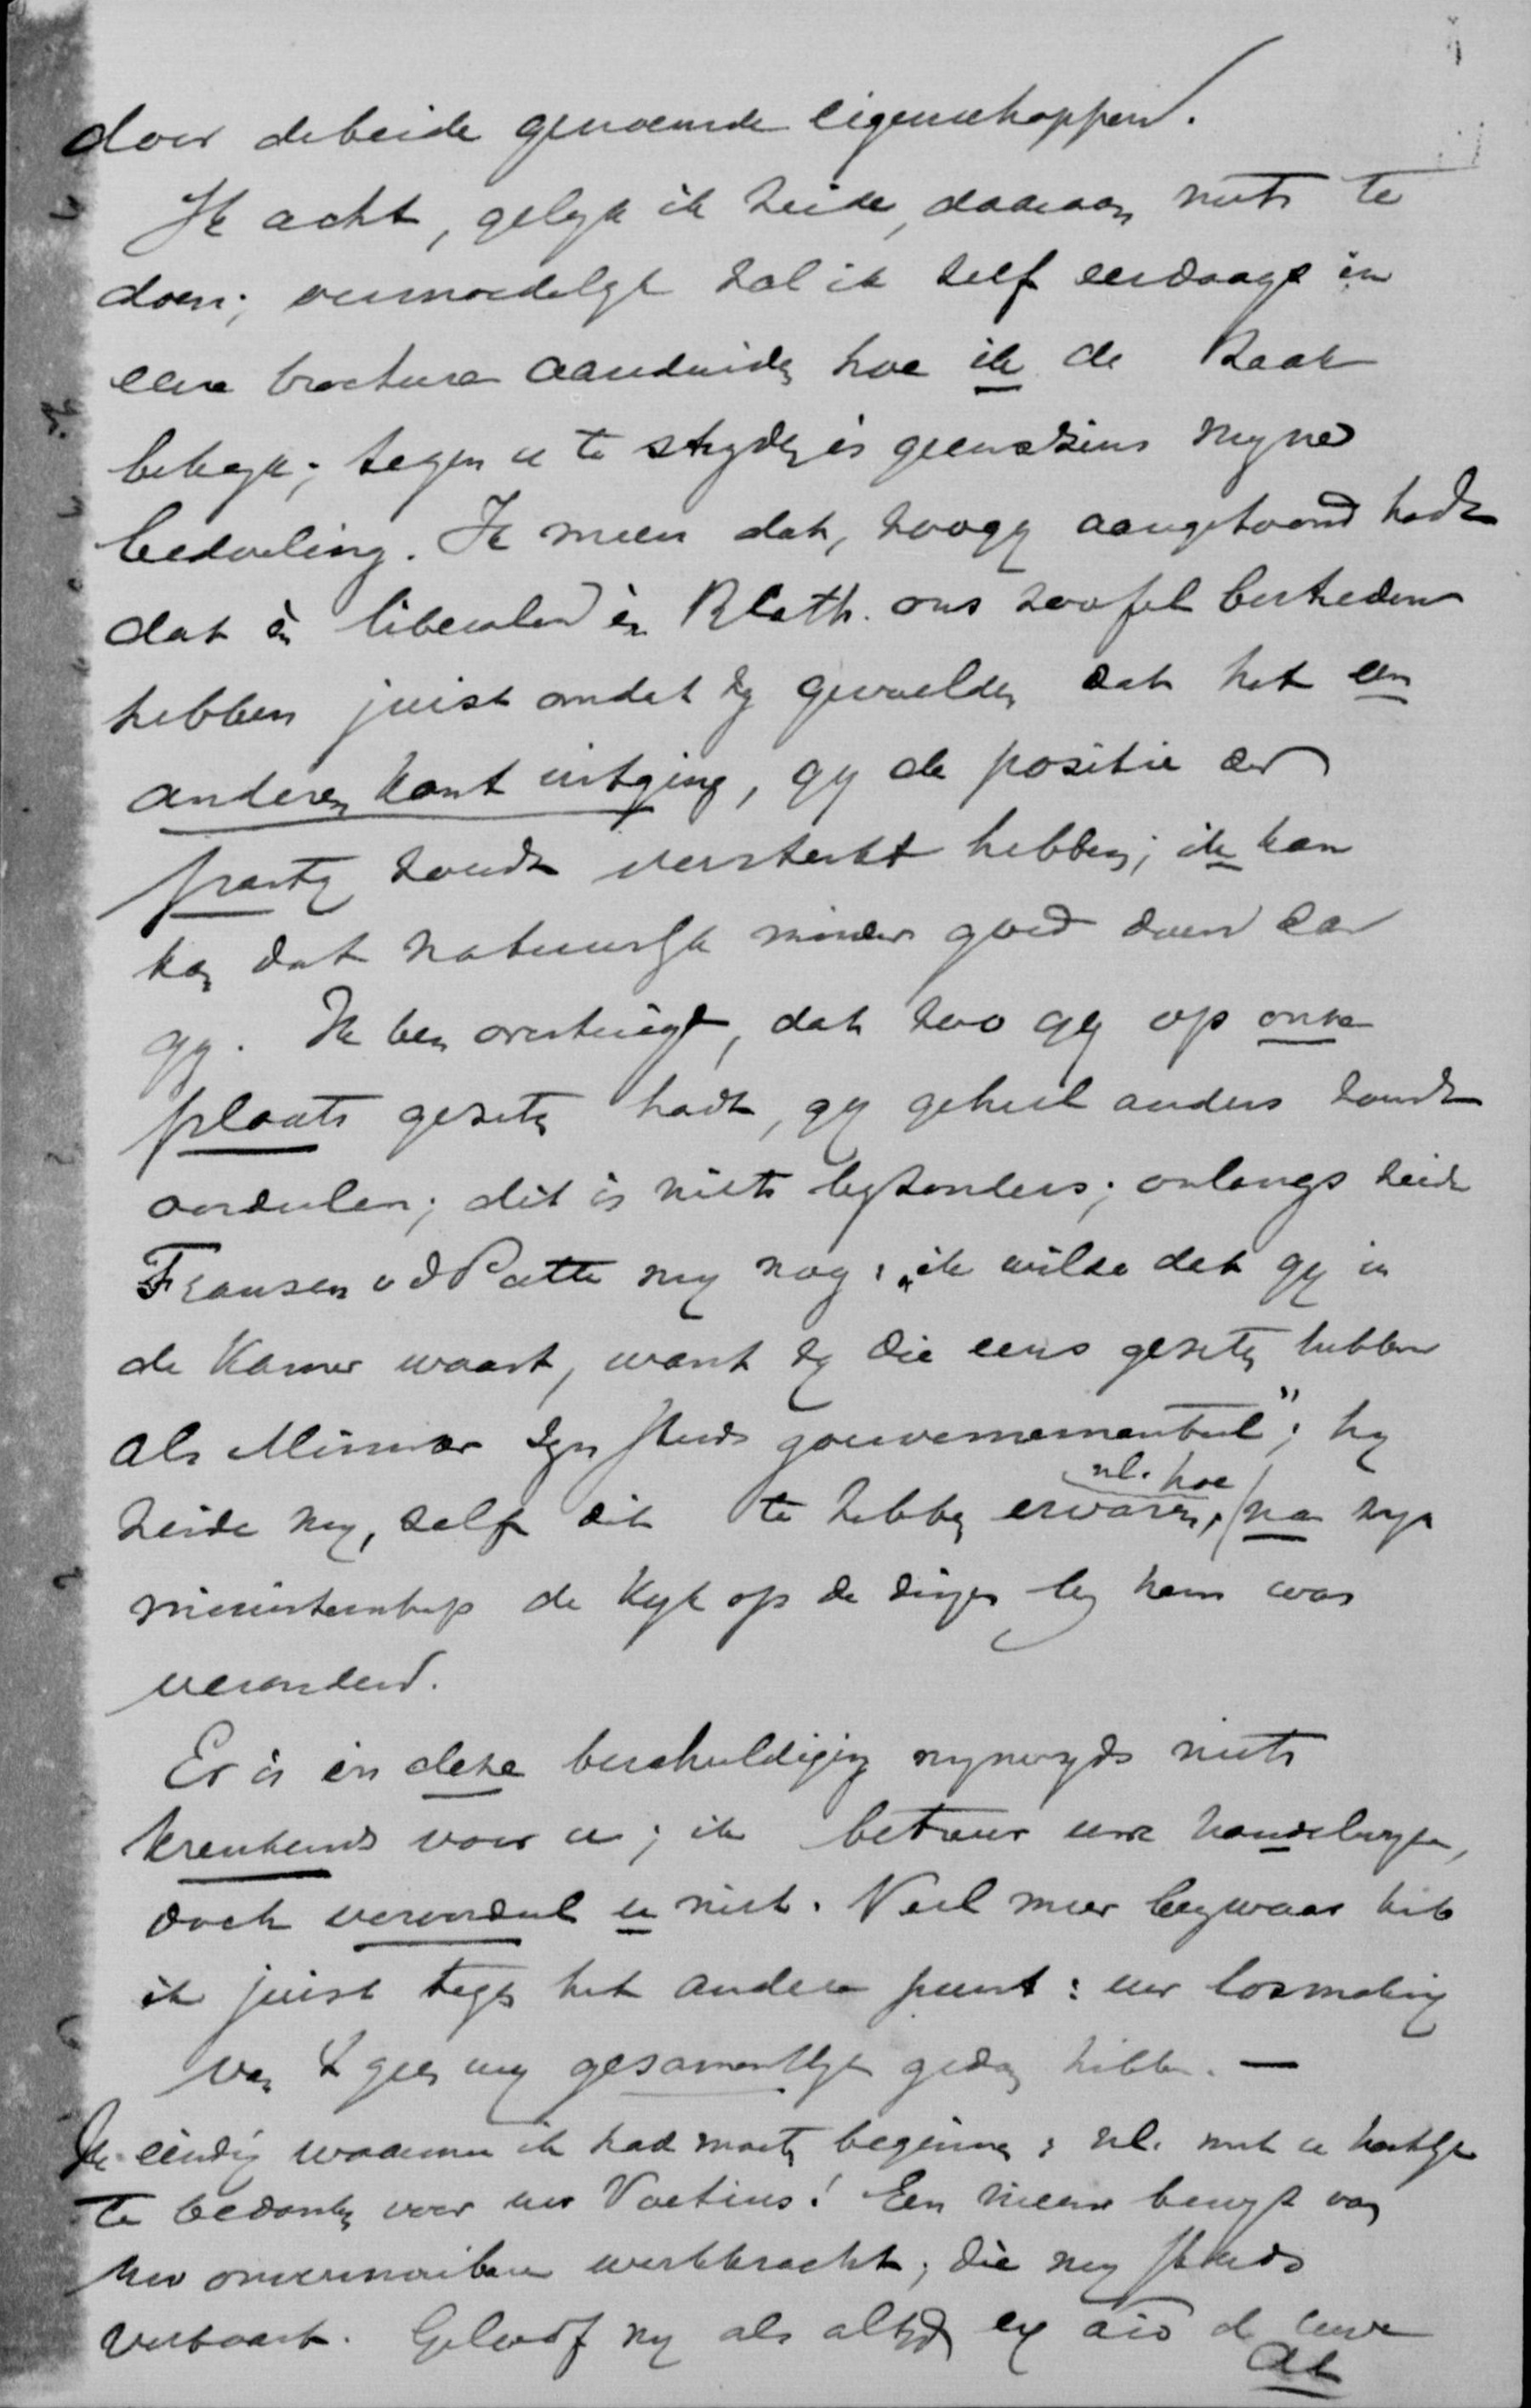 door de beide genoemde eigenschappen.
Ik acht, gelyk ik zeide, daaraan niets te
doen; vermoedelyk zal ik zelf eerdaags in
eene brochure aanduiden hoe ik de zaak
bekyk; tegen u te stryden is geenszins myne
bedoeling. Ik meen dat, zoo gy aangetoond hadt
dat èn liberalen èn R Kath. ons zoo fel bestreden
hebben juist omdat zy gevoelden dat het een
anderen kant uitging, gy de positie der
party zoudt versterkt hebben; ik kan
kan dat natuurlyk minder goed doen dan
gy. Ik ben overtuigd, dat zoo gy op onze
plaats gezeten hadt, gy geheel anders zoudt
oordeelen; dit is niets byzonders; onlangs zeide
Fransen v d Putte my nog: „ik wilde dat gy in
de Kamer waart, want zy die eens gezeten hebben
als Minister zyn steeds gouvernementeel"; hy
zeide my, zelf dit te hebben ervaren, nl. hoe na zyn
ministerschap de kyk op de dingen by hem was
veranderd.
Er is in deze beschuldiging mynerzyds niets
krenkends voor u; ik betreur uwe handelingen,
doch veroordeel u niet. Veel meer bezwaar heb
ik juist tegen het andere punt: uw losmaking
van &tgeen wy gezamentlyk gedaan hebben. —
Ik eindig waarmee ik had moeten beginnen: nl. met u hartelyk
te bedanken voor uw Voetius! Een nieuw bewys van
uw onvermoeibare werkkracht; die my steeds
verbaast. Geloof my als altyd ex aîo de uwe
AL